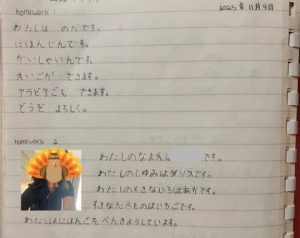 homework 1
2025年11月9日
わたしは のだです。
にほんじんです。
かいしゃいんです。
えいごが できます。
アラビアごも できます。
どうぞ よろしく。
homework 2
わたしのなまえは です。
わたしのしゅみはダンスです。
わたしのすきないろはあかです。
すきなたべものはいちごです。
わたしはにほんごをべんきょうしています。